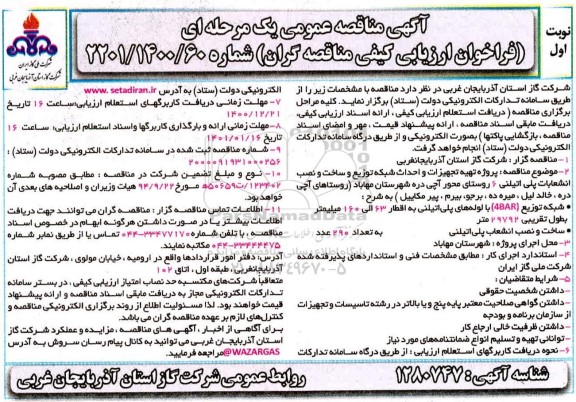 نوبت اول
آگهی مناقصه عمومی یک مرحله ای
(فراخوان ارزیابی کیفی مناقصه گران) شماره ۲۲۰۱/۱۴۰۰/۶۰
شرکت ملی گاز ایران
شرکت گاز استان آذربایجان غربی
شرکت گاز استان آذربایجان غربی در نظر دارد مناقصه با مشخصات زیر را از
طریق سامانه تدارکات الکترونیکی دولت (ستاد) برگزار نماید. کلیه مراحل
برگزاری مناقصه (دریافت استعلام ارزیابی کیفی، ارائه اسناد ارزیابی کیفی،
دریافت مابقی اسناد مناقصه، ارائه پیشنهاد قیمت، مهر و امضای اسناد
مناقصه، بازگشایی پاکتها) بصورت الکترونیکی و از طریق درگاه سامانه تدارکات
الکترونیکی دولت (ستاد) انجام خواهد گرفت.
۱- مناقصه گزار: شرکت گاز استان آذربایجانغربی
۲- موضوع مناقصه: پروژه تهیه تجهیزات و احداث شبکه توزیع و ساخت و نصب
انشعابات پلی اتیلنی ۶ روستای محور آچی دره شهرستان مهاباد (روستاهای آچی
دره، خالد لیل، میره ده، برجو، بیرم، پیر مکاییل) به شرح:
● شبکه توزیع (4BAR) با لوله‌های پلی‌اتیلنی به اقطار ۶۳ الی ۱۶۰ میلیمتر
بطول تقریبی ۲۹۷۹۲ متر
● ساخت و نصب انشعاب پلی‌اتیلنی به تعداد ۲۹۰ عدد
۳- محل اجرای پروژه: شهرستان مهاباد
۴- استاندارد اجرای کار: مطابق مشخصات فنی و استانداردهای پذیرفته شده
شرکت ملی گاز ایران
۵- شرایط متقاضیان:
- داشتن شخصیت حقوقی
- داشتن گواهی صلاحیت معتبر پایه پنج و یا بالاتر در رشته تاسیسات و تجهیزات
از سازمان برنامه و بودجه
- داشتن ظرفیت خالی ارجاع کار
- توانائی تهیه و تسلیم انواع ضمانتنامه‌های مورد نیاز
۶- نحوه دریافت کاربرگهای استعلام ارزیابی: از طریق درگاه سامانه تدارکات
الکترونیکی دولت (ستاد) به آدرس www.setadiran.ir
۷- مهلت زمانی دریافت کاربرگهای استعلام ارزیابی: ساعت ۱۶ تاریخ
۱۴۰۰/۱۲/۲۱
۸- مهلت زمانی ارائه و بارگذاری کاربرگها واسناد استعلام ارزیابی: ساعت ۱۶
تاریخ ۱۴۰۱/۰۱/۱۶
۹- شماره مناقصه ثبت شده در سامانه تدارکات الکترونیکی دولت (ستاد):
۲۰۰۰۰۹۱۹۳۱۰۰۰۲۵۶
۱۰- نوع و مبلغ تضمین شرکت در مناقصه: مطابق مصوبه شماره
۱۲۳۴۰۲/ت۵۰۶۵۹ه مورخ ۹۴/۹/۲۲ هیات وزیران و اصلاحیه های بعدی آن
خواهد بود.
۱۱- اطلاعات تماس مناقصه گزار: مناقصه گران می توانند جهت دریافت
اطلاعات بیشتر یا در صورت داشتن هرگونه ابهام در خصوص اسناد
مناقصه، با تلفن شماره ۳۳۴۷۷۱۷-۰۴۴ تماس یا از طریق نمابر شماره
۳۳۴۴۴۴۷۵-۰۴۴ مکاتبه نمایند.
آدرس: دفتر امور قراردادها واقع در ارومیه، خیابان مولوی، شرکت گاز استان
آذربایجانغربی، طبقه اول، اتاق ۱۰۲
متعاقباً شرکت‌های مکتسبه حد نصاب امتیاز ارزیابی کیفی، در بستر سامانه
تدارکات الکترونیکی مجاز به دریافت مابقی اسناد مناقصه و ارائه پیشنهاد
قیمت خواهند بود. لذا مسئولیت اطلاع از روند برگزاری الکترونیکی مناقصه و
کنترل‌های لازم بر عهده مناقصه گران می باشد.
برای آگاهی از اخبار، آگهی های مناقصه، مزایده و عملکرد شرکت گاز
استان آذربایجان غربی می توانید به کانال پیام رسان سروش به آدرس
@WAZARGAS مراجعه فرمایید.
شناسه آگهی: ۱۲۸۰۷۴۷
روابط عمومی شرکت گاز استان آذربایجان غربی